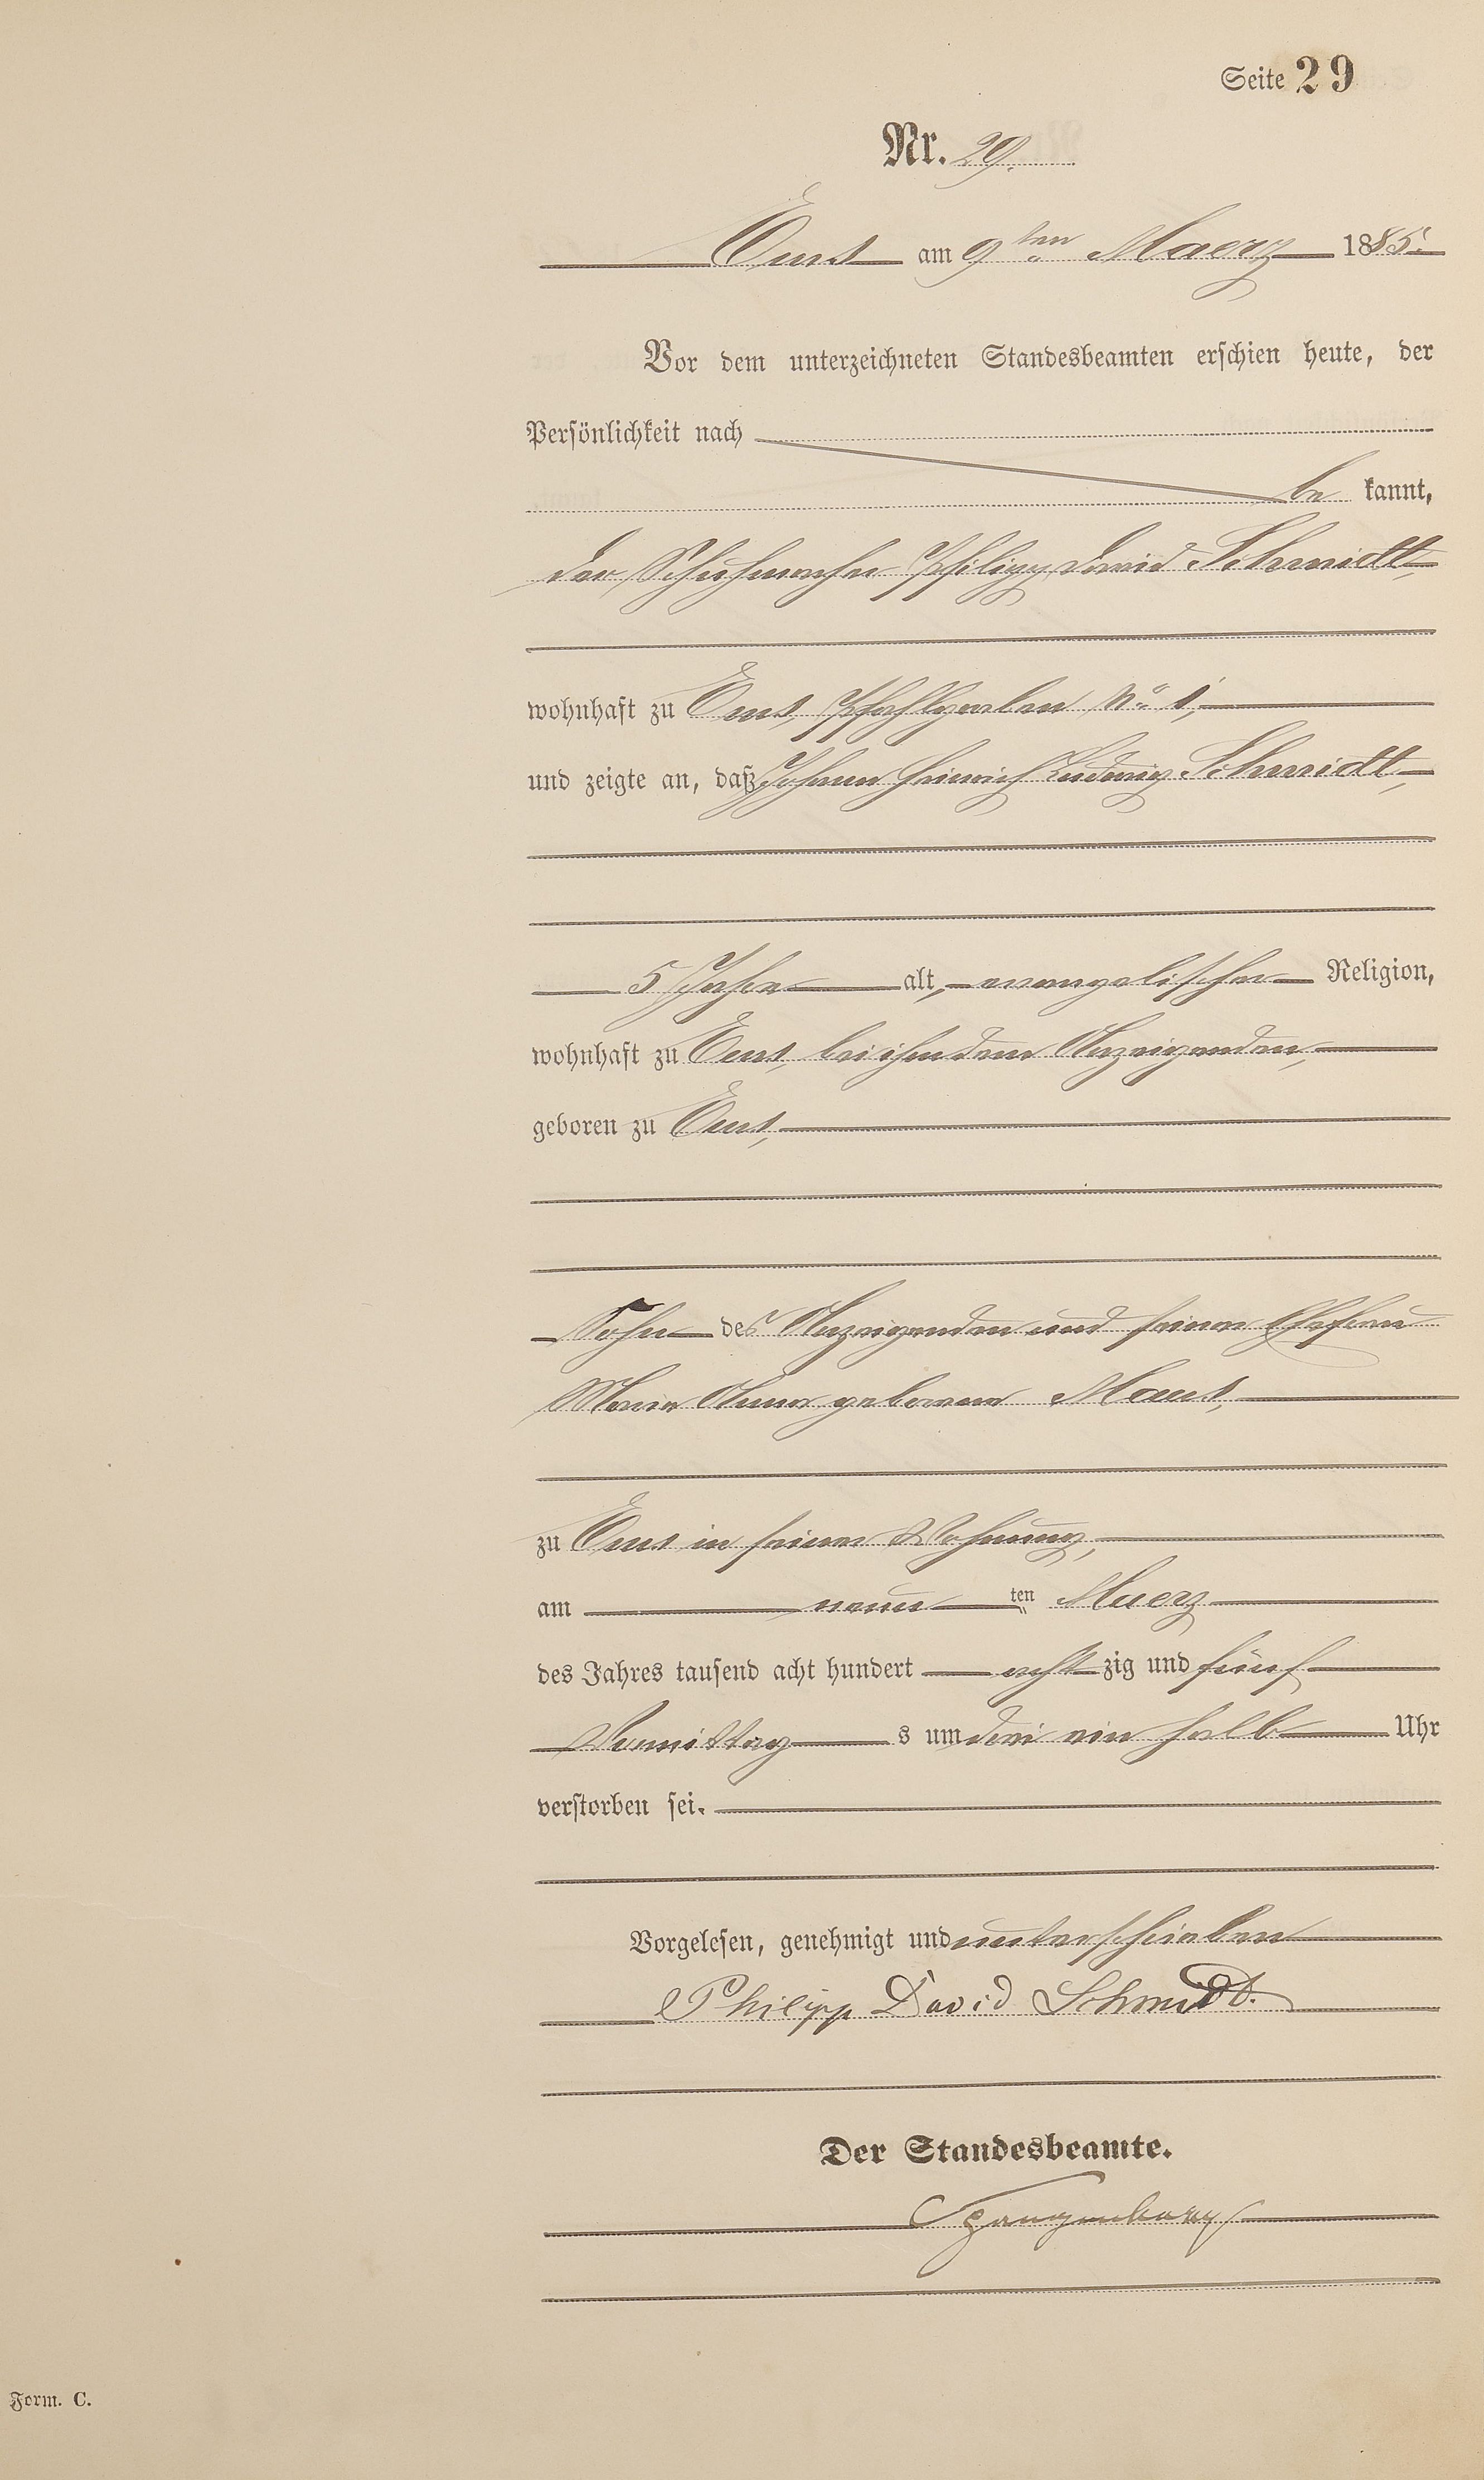 Seite 29
Nr. 29.
Ems am 9ten Maerz 1885.
Vor dem unterzeichneten Standesbeamten erschien heute, der
Persönlichkeit nach
be kannt,
der Schuhmacher Philipp David Schmidt,
wohnhaft zu Ems, Pfahlgraben No 1,
und zeigte an, daß Johann Heinrich Ludwig Schmidt,
5 Jahre alt, evangelischer Religion,
wohnhaft zu Ems, bei ihm dem Anzeigenden,
geboren zu Ems,
Sohn des Anzeigenden und seiner Ehefrau
Maria Anna geborene
zu Ems in seiner Wohnung,
am neun ten Maerz
des Jahres tausend acht hundert acht zig und fünf
Vormittag s um drei ein halb Uhr
verstorben sei.
Vorgelesen, genehmigt und unterschrieben
Philipp David Schmidt.
Der Standesbeamte.
Spangenberg
Form. C.